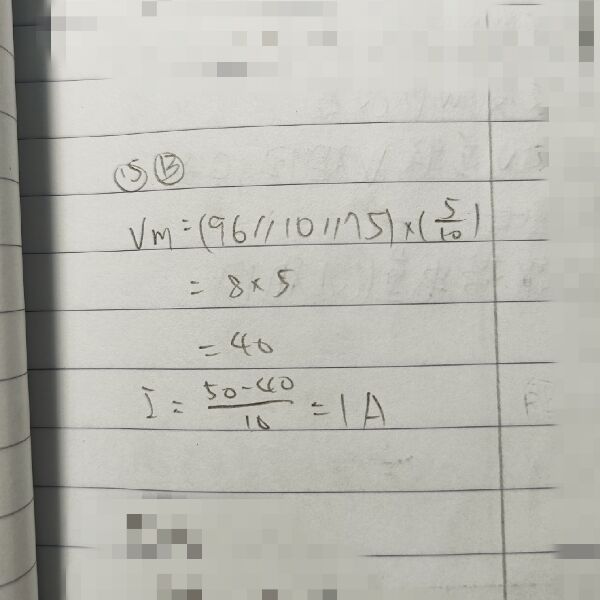 ⑮ Ⓑ
Vm = (96//10//75) × (5/10)
= 8 × 5
= 40
I = (50-40)/10 = 1A